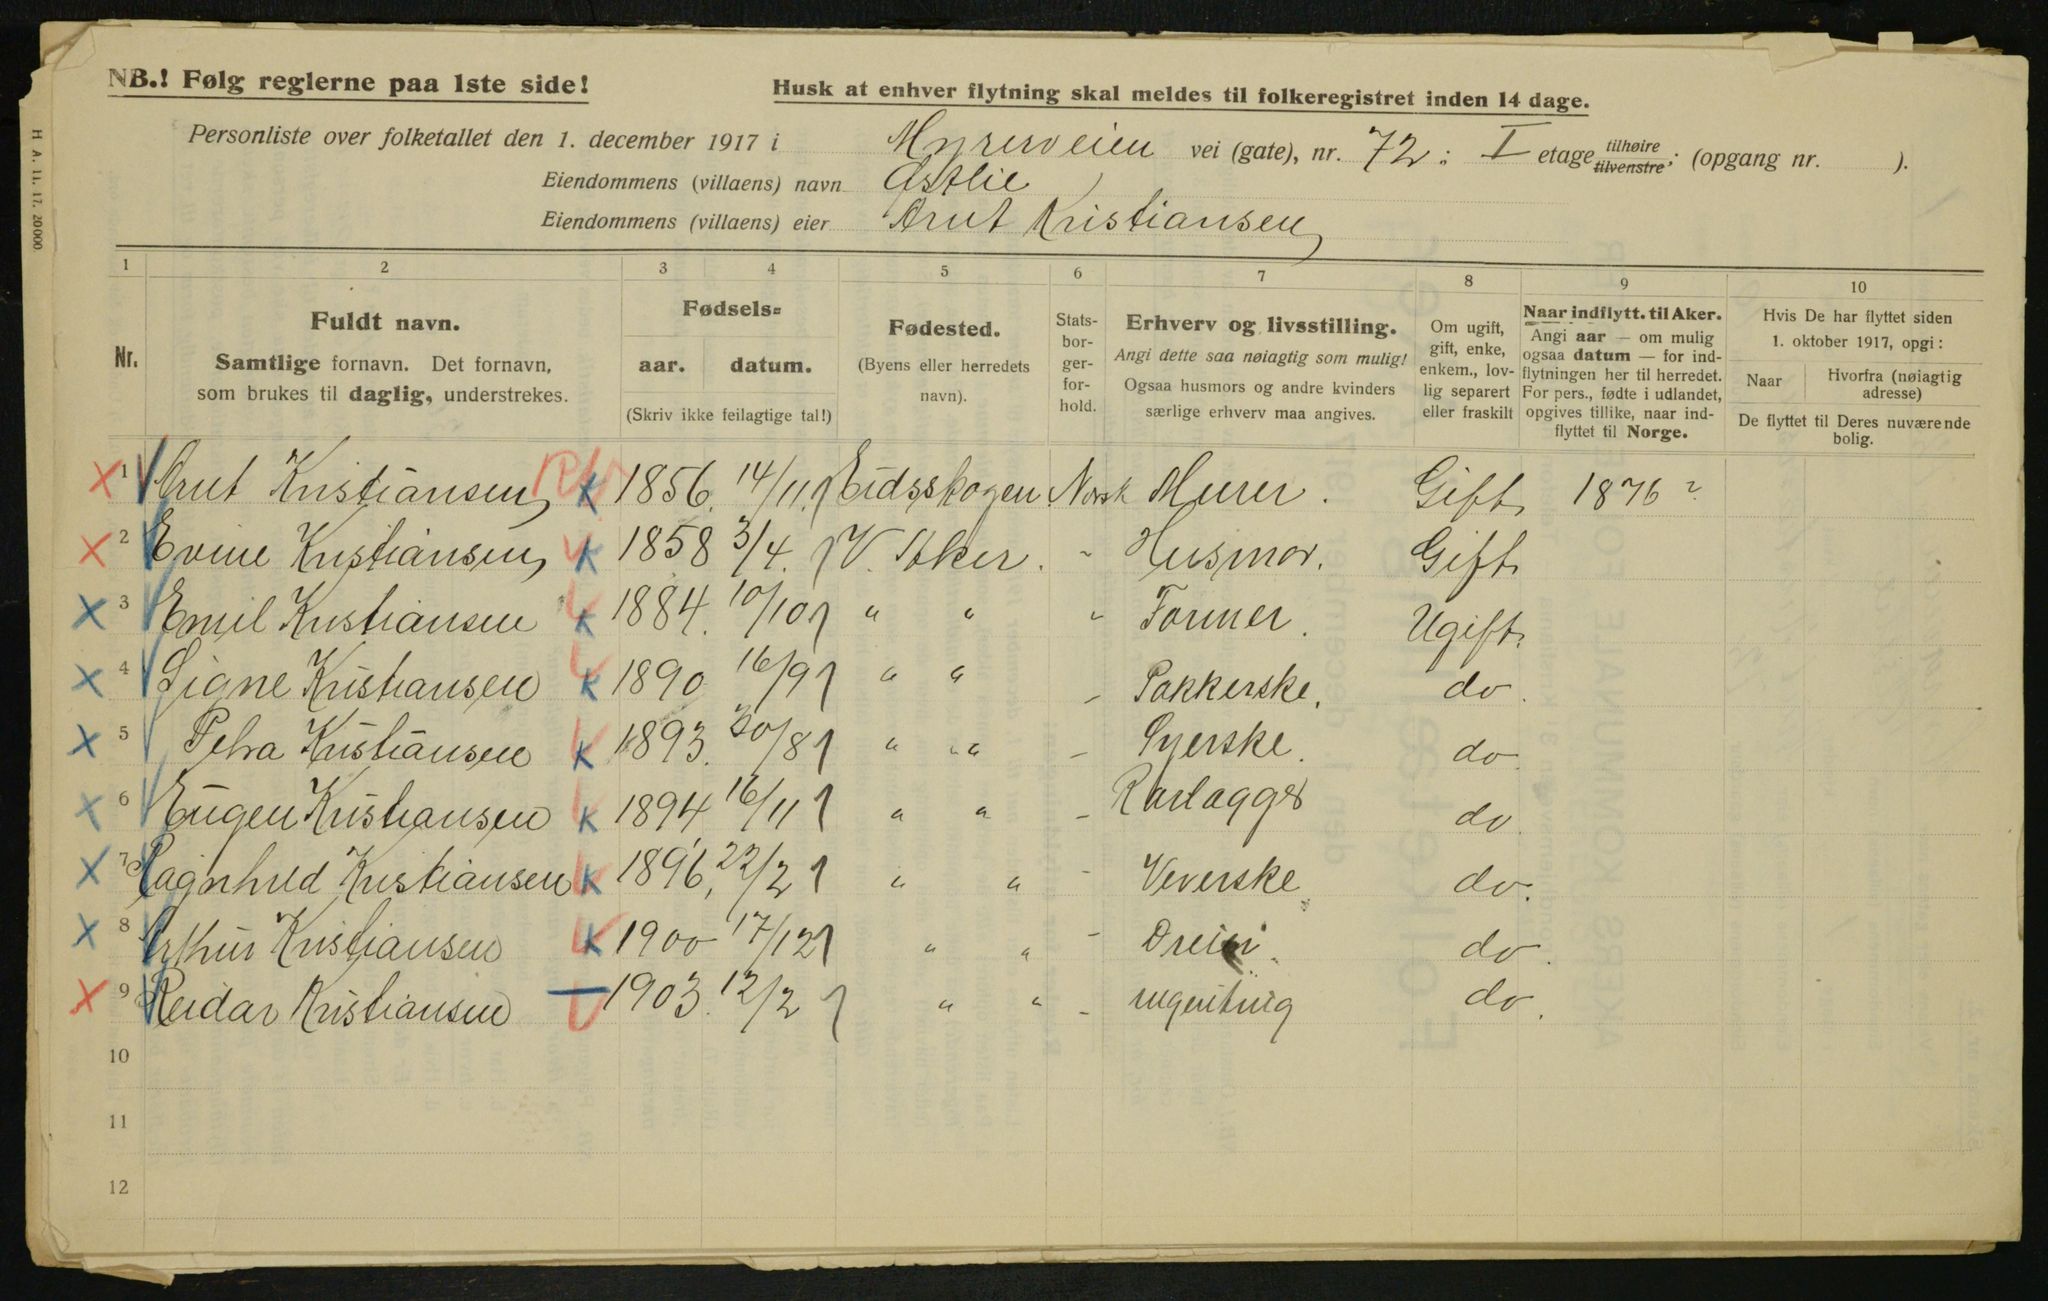 NB.! Følg reglerne paa 1ste side!
Husk at enhver flytning skal meldes til folkeregistret inden 14 dage.
Personliste over folketallet den 1. december 1917 i Myrerveien vei (gate), nr. 72: I etage tilhøire tilvenstre; (opgang nr. ).
Eiendommens (villaens) navn Østlie
Eiendommens (villaens) eier Arnt Kristiansen
H A. 11. 17. 20000.
1 2 3 4 5 6 7 8 9 10
Nr.
Fuldt navn.
Samtlige fornavn. Det fornavn,
som brukes til daglig, understrekes.
Fødsels=
aar. datum.
(Skriv ikke feilagtige tal!)
Fødested.
(Byens eller herredets
navn).
Stats-
bor-
ger-
for-
hold.
Erhverv og livsstilling.
Angi dette saa nøiagtig som mulig!
Ogsaa husmors og andre kvinders
særlige erhverv maa angives.
Om ugift,
gift, enke,
enkem., lov-
lig separert
eller fraskilt
Naar indflytt. til Aker.
Angi aar — om mulig
ogsaa datum — for ind-
flytningen her til herredet.
For pers., fødte i udlandet,
opgives tillike, naar ind-
flyttet til Norge.
Hvis De har flyttet siden
1. oktober 1917, opgi:
Naar Hvorfra (nøiagtig
adresse)
De flyttet til Deres nuværende
bolig.
1 Arnt Kristiansen K 1856. 14/11. Eidsskogen Norsk Murer. Gift 1876?
2 Evine Kristiansen K 1858 3/4. V. Aker. " Husmor. Gift
3 Emil Kristiansen K 1884. 10/10 " " " Former. Ugift
4 Signe Kristiansen K 1890 16/9 " " - Pakkerske. do.
5 Petra Kristiansen K 1893. 30/8 " " - Syerske. do.
6 Eugen Kristiansen K 1894 16/11 " " - Rørlægger do.
7 Ragnhild Kristiansen K 1896, 22/2 " " - Veverske do.
8 Arthur Kristiansen K 1900 17/12 " " - Dreier. do.
9 Reidar Kristiansen 1903. 12/2 " " - ingenting do.
10
11
12